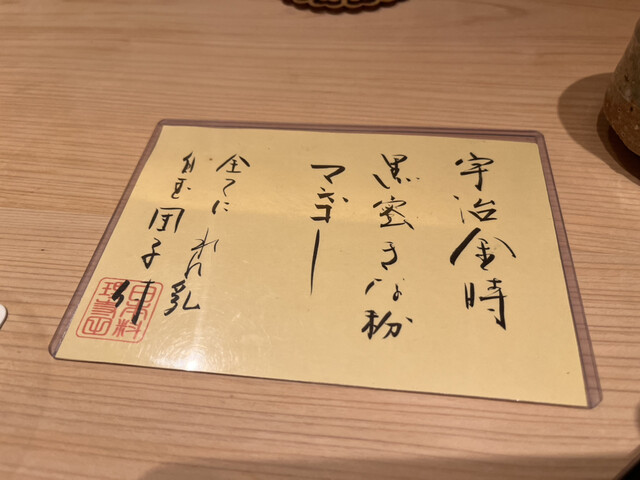 宇治金時
黒蜜きな粉
マンゴー
全てに れん乳
白玉団子付
日本料理